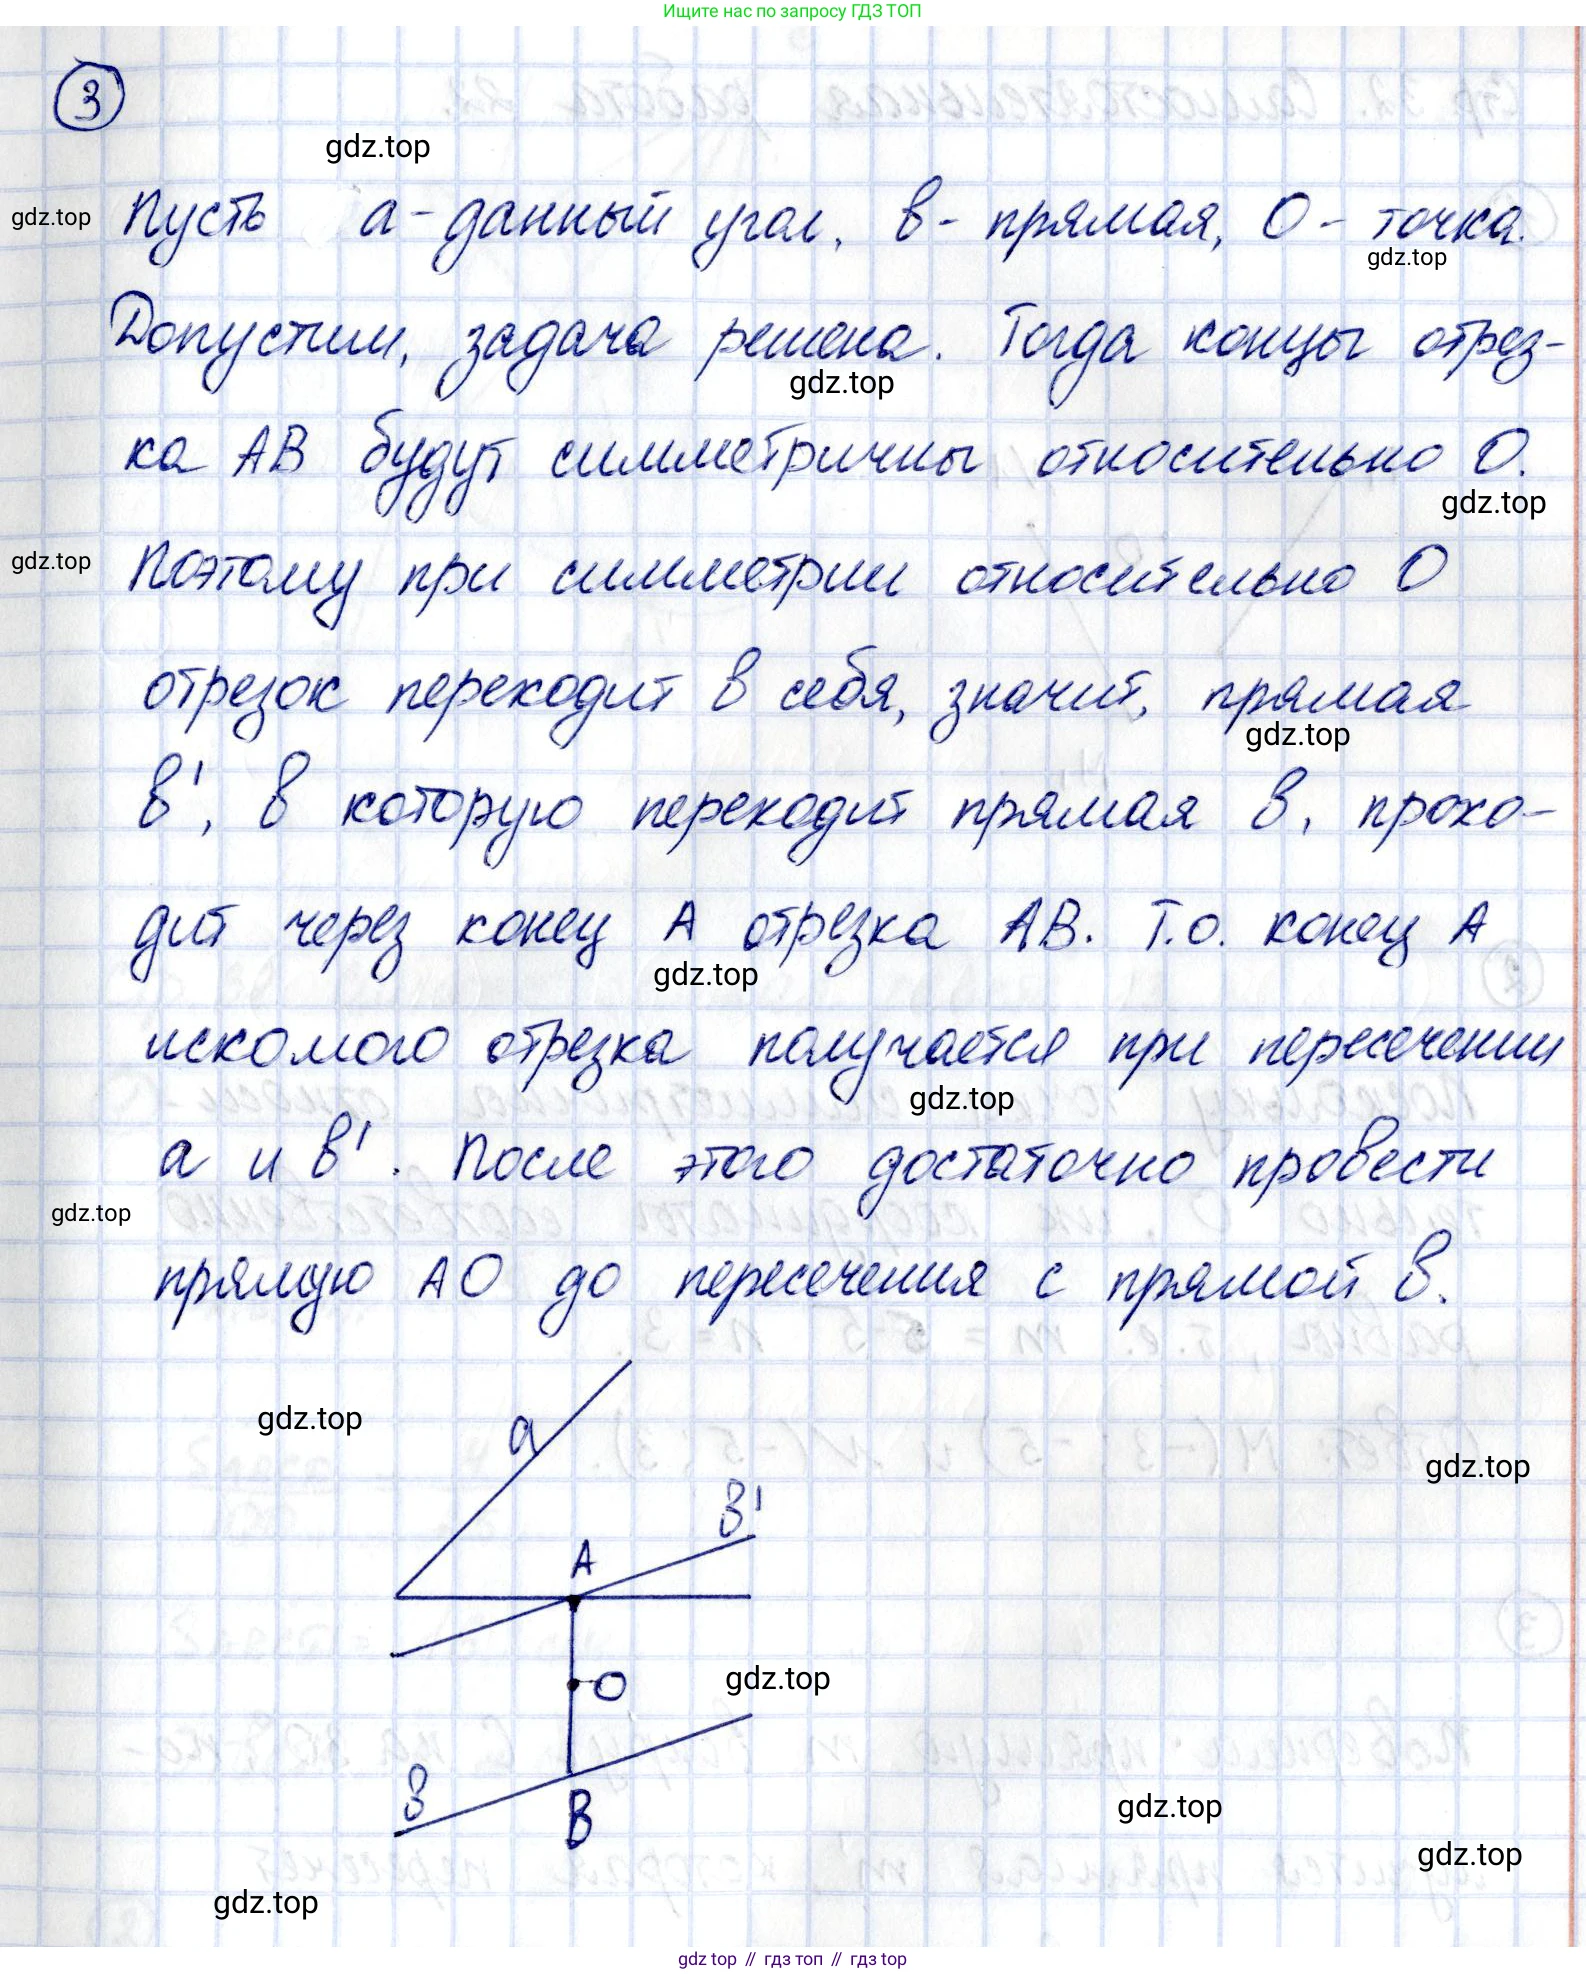 Ищите нас по запросу ГДЗ ТОП
3
gdz.top
gdz.top
Пусть а - данный угол, в - прямая, О - точка.
gdz.top
Допустим, задача решена. Тогда концы отрез-
gdz.top
ка АВ будут симметричны относительно О.
gdz.top
gdz.top
Поэтому при симметрии относительно О
отрезок переходит в себя, значит, прямая
gdz.top
в', в которую переходит прямая в, прохо-
дит через конец А отрезка АВ. Т.о. конец А
gdz.top
искомого отрезка получается при пересечении
gdz.top
а и в'. После этого достаточно провести
gdz.top
прямую АО до пересечения с прямой в.
gdz.top
а
gdz.top
в'
А
gdz.top
О
в
В
gdz.top
gdz.top
gdz.top
gdz top // гдз топ // гдз top